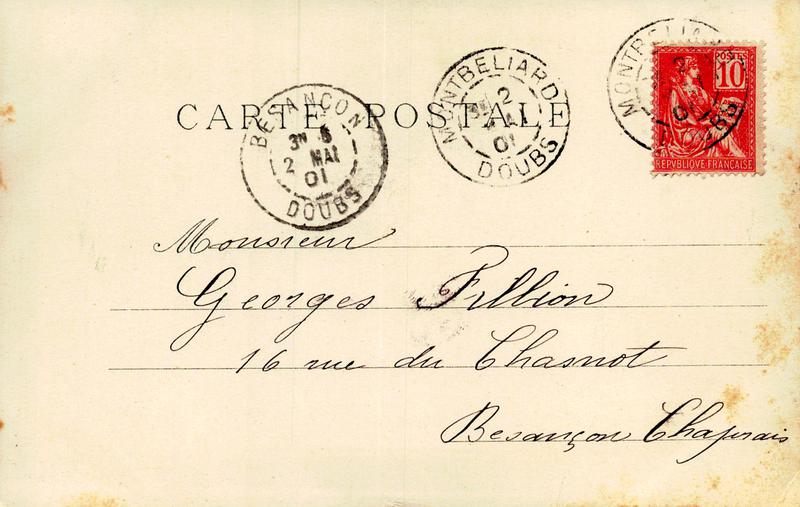 CARTE POSTALE
BESANÇON
3E 5
2 MAI
01
DOUBS
MONTBELIARD
2
MAI
01
DOUBS
MONTBELIARD
2
01
DOUBS
POSTES
10
REPVBLIQVE FRANÇAISE
Monsieur
Georges Fillion
16 rue du Chasnot
Besançon Chaprais